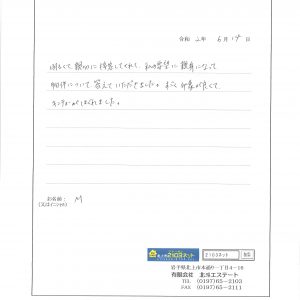 令和 2年 6月 17日
明るくて親切に接客してくれて 私の希望に親身になって
物件について答えていただきました。すごく印象が良くて
テンションがはぐれました。
お名前: M
(又はイニシャル)
北上市 2103ネット
2103ネット
岩手県北上市本通り一丁目4-18
有限会社 北洋エステート
TEL (0197)65-2103
FAX (0197)65-2111